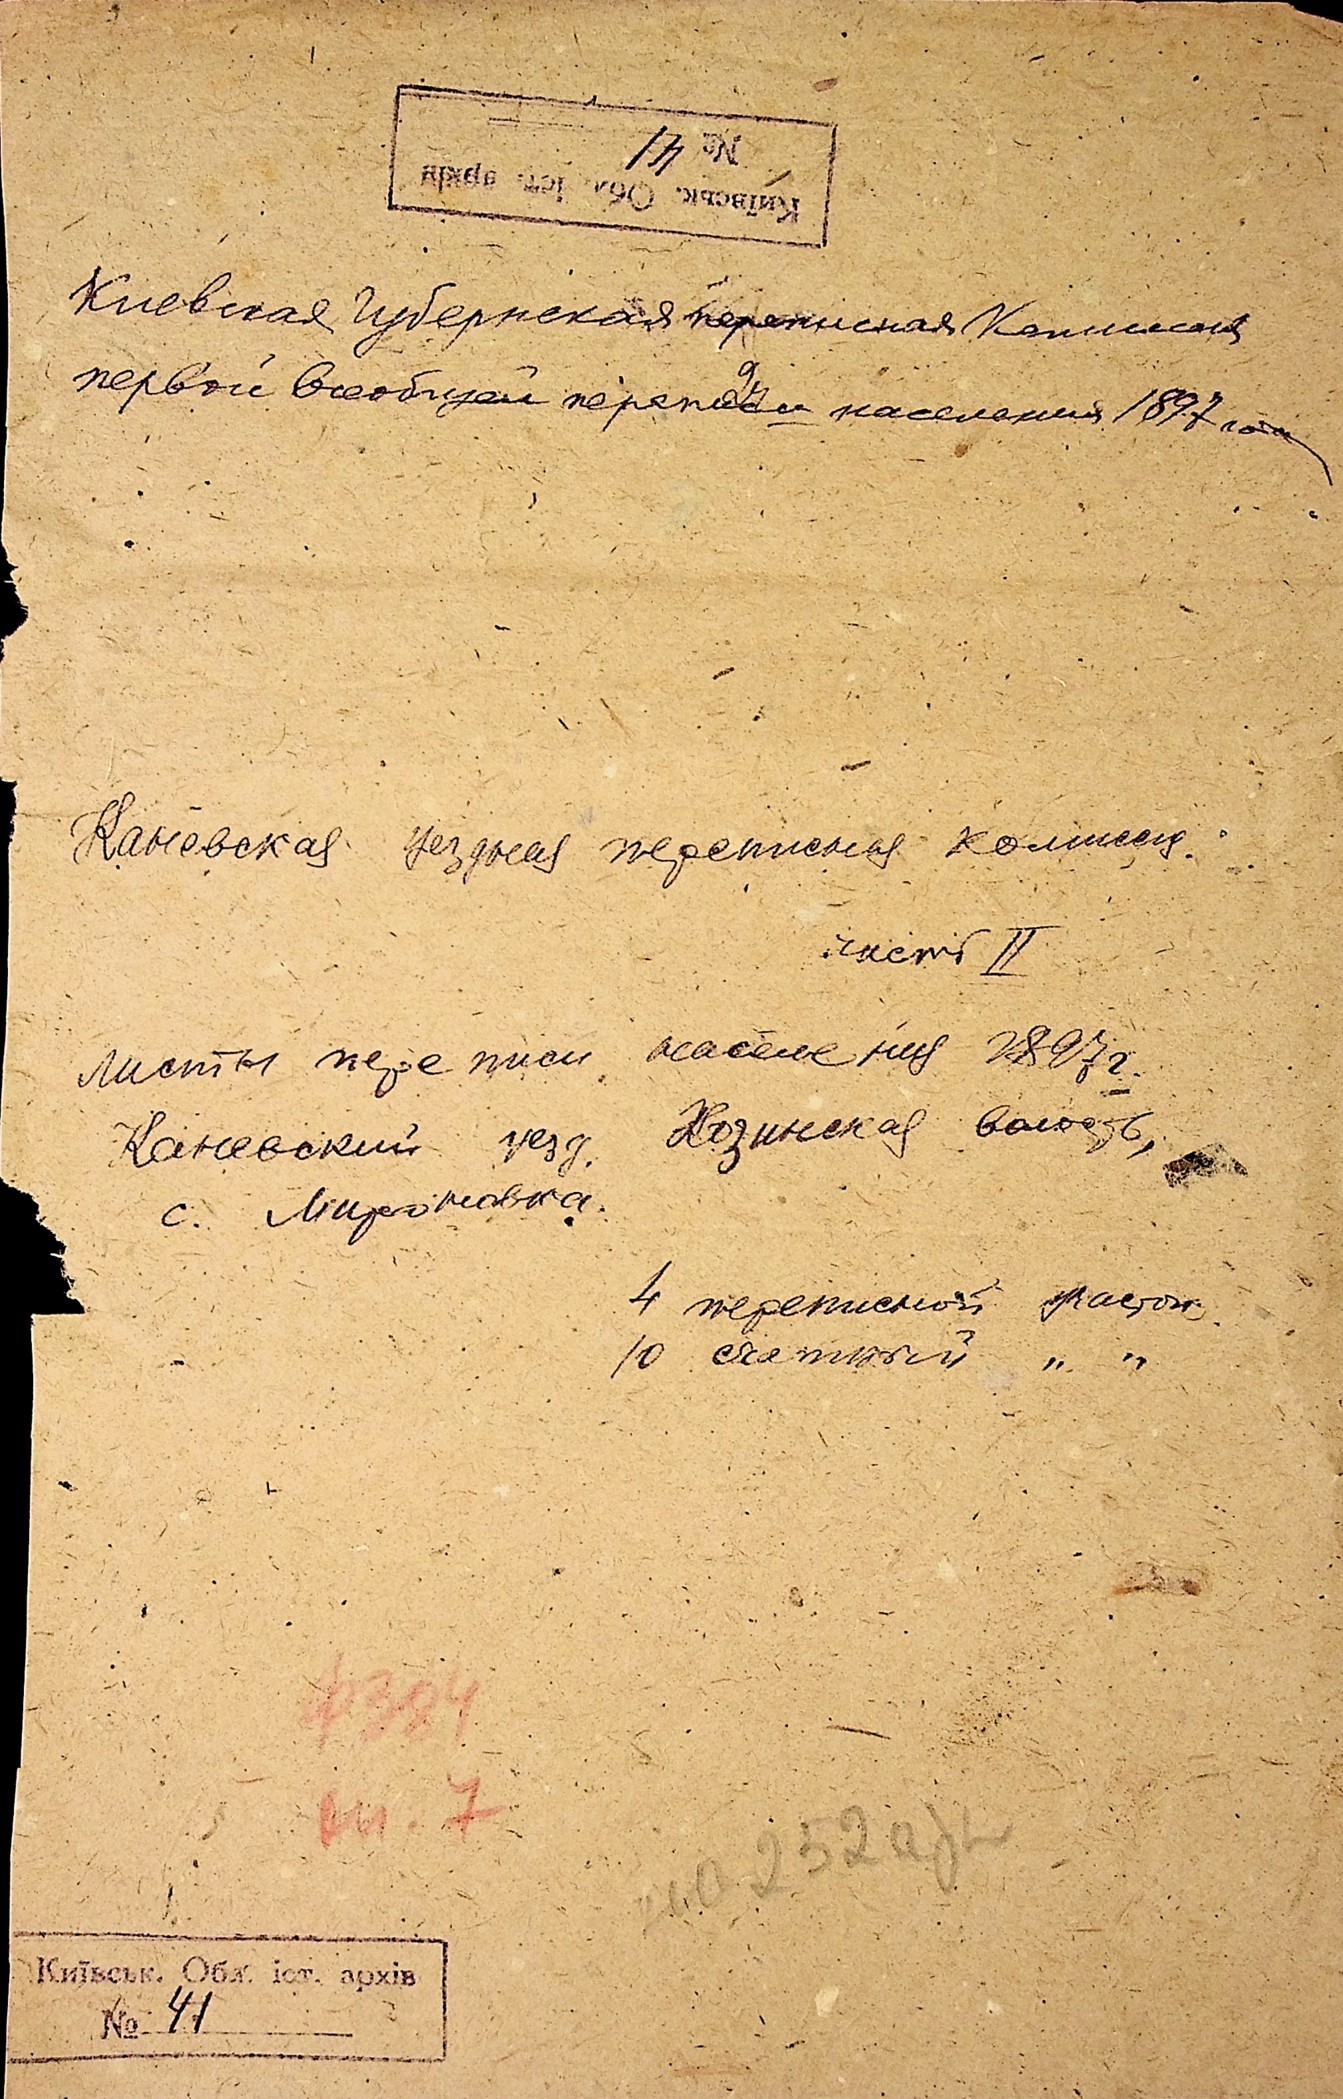 Київськ. Обл. іст. архів
№ 41
Киевская Губернская переписная Комиссия
первой Всеобщей переписи населения 1897 года
Каневская уездная переписная комиссия.
часть II
Листы переписи населения 1897 г.
Каневский уезд. Козинская волость,
с. Мироновка.
4 переписной участок
10 счетный " "
ф 384
оп. 7
252
Київськ. Обл. іст. архів
№ 41